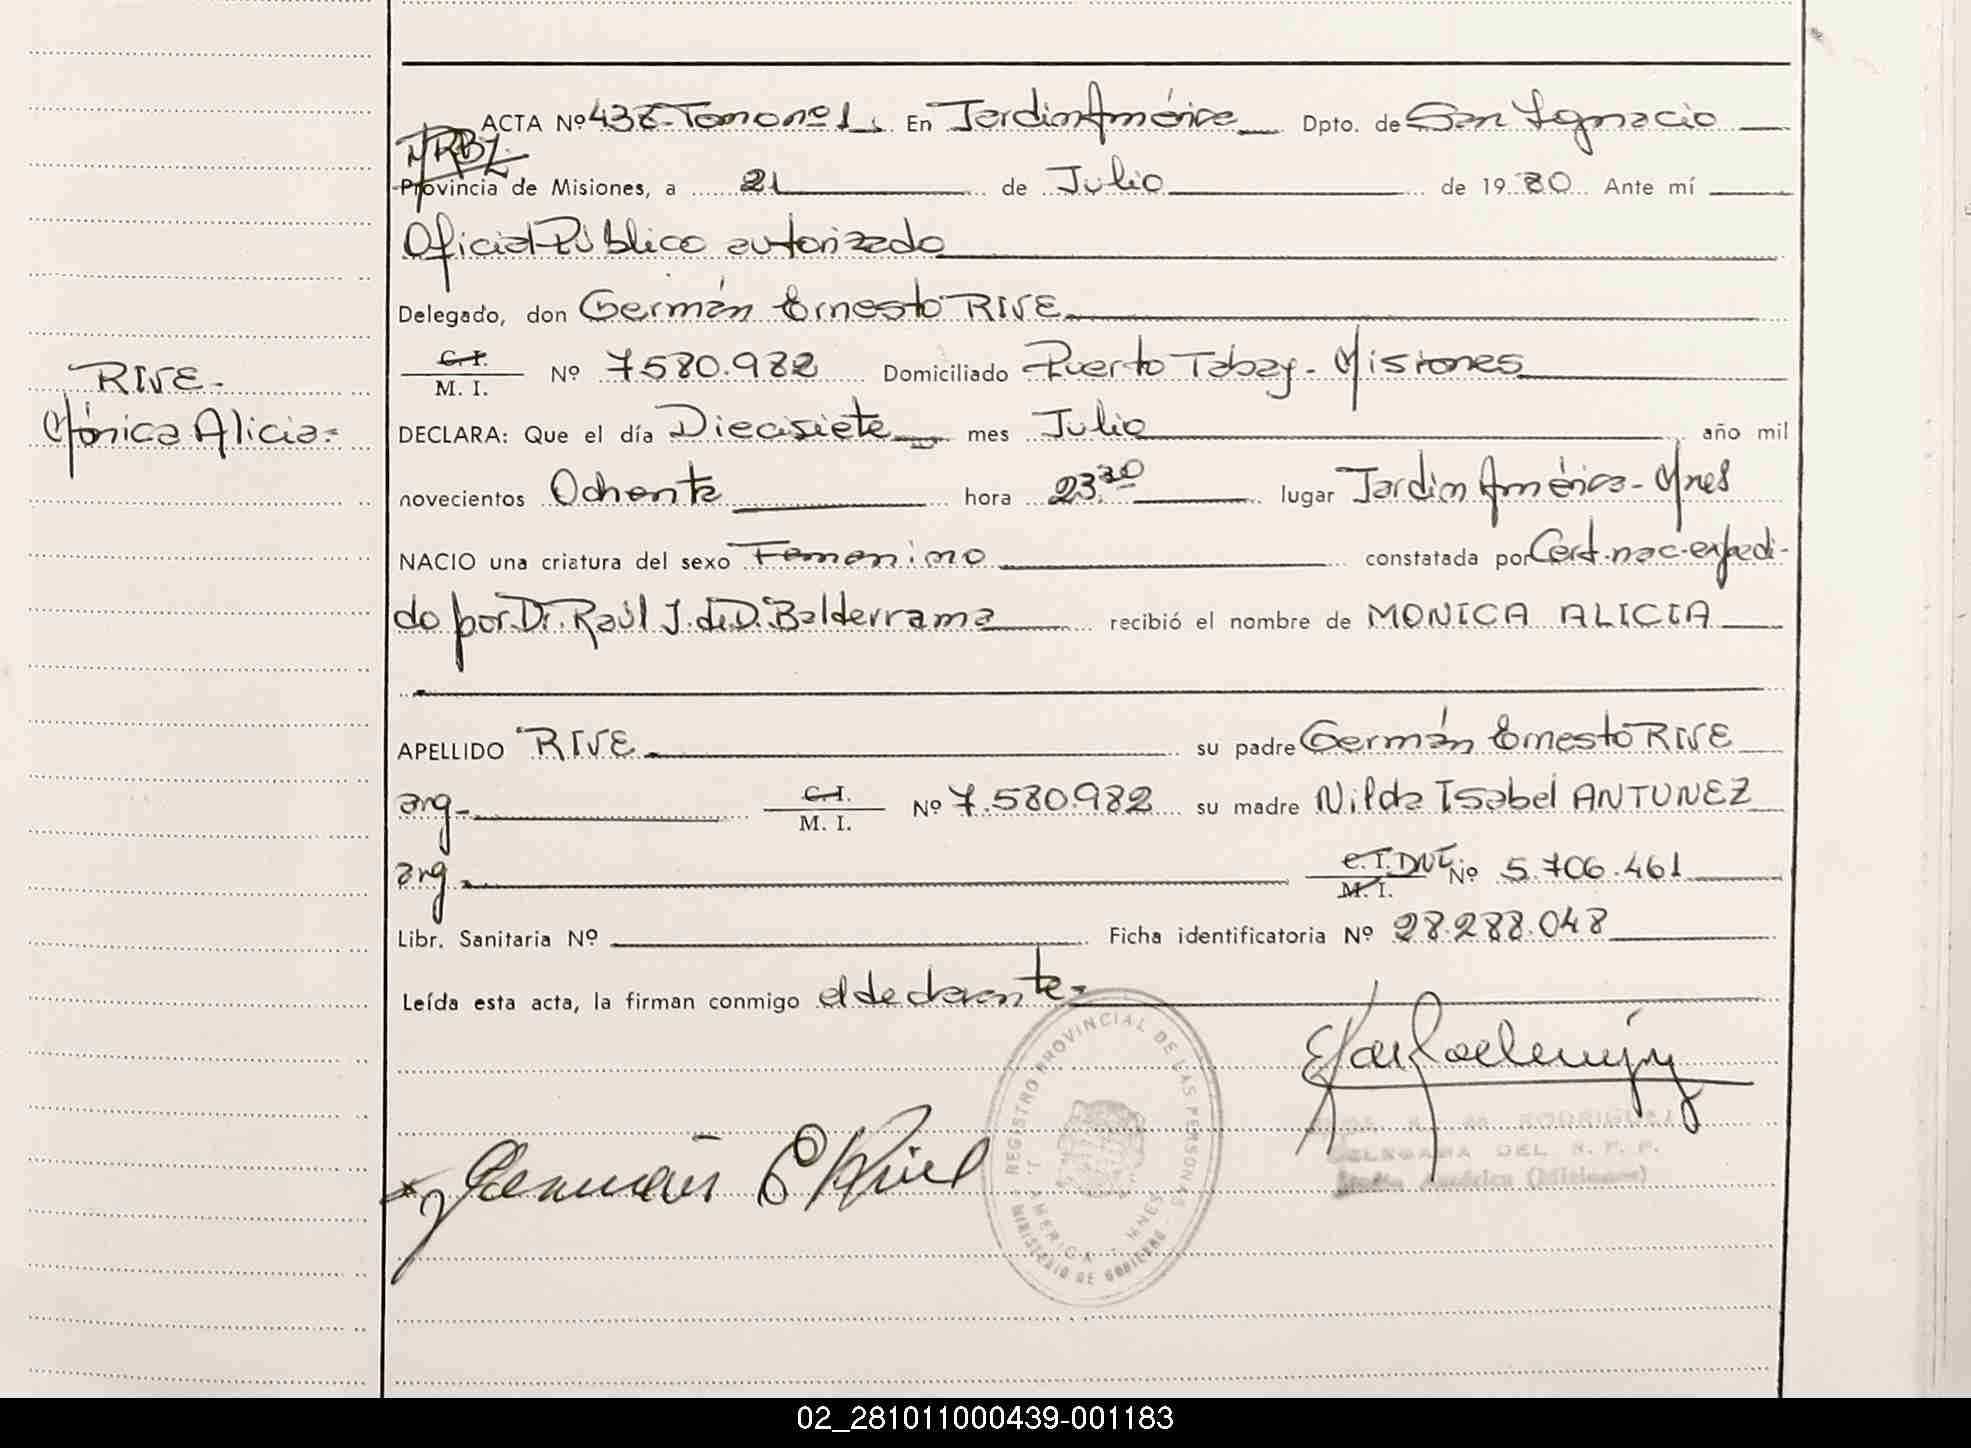 ACTA Nº 438 - Tomo nº 1. En Jardin América Dpto. de San Ignacio
Provincia de Misiones, a 21 de Julio de 19 80 Ante mí
Oficial Público autorizado
Delegado, don Germán Ernesto RIVE
C. I.
M. I. Nº 7580.982 Domiciliado Puerto Tabay - Misiones
RIVE -
Mónica Alicia =
DECLARA: Que el día Diecisiete mes Julio año mil
novecientos Ochenta hora 23 30 lugar Jardin América - Mnes
NACIO una criatura del sexo Femenino constatada por Cert. nac. expedi-
do por Dr. Raúl J. de D. Balderrama recibió el nombre de MONICA ALICIA
APELLIDO RIVE su padre Germán Ernesto RIVE
arg - C. I.
M. I. Nº 7.580.982 su madre Nilda Isabel ANTUNEZ
arg - C. I. DNI Nº 5.706.461
M. I.
Libr. Sanitaria Nº Ficha identificatoria Nº 28.288.048
Leída esta acta, la firman conmigo el declarante =
REGISTRO PROVINCIAL DE LAS PERSONAS
MINISTERIO DE GOBIERNO
J. AMERICA - MNES
Germán E Rive
RODRIGUEZ
DELEGADA DEL R. P. P.
Jardín América (Misiones)
02_281011000439-001183